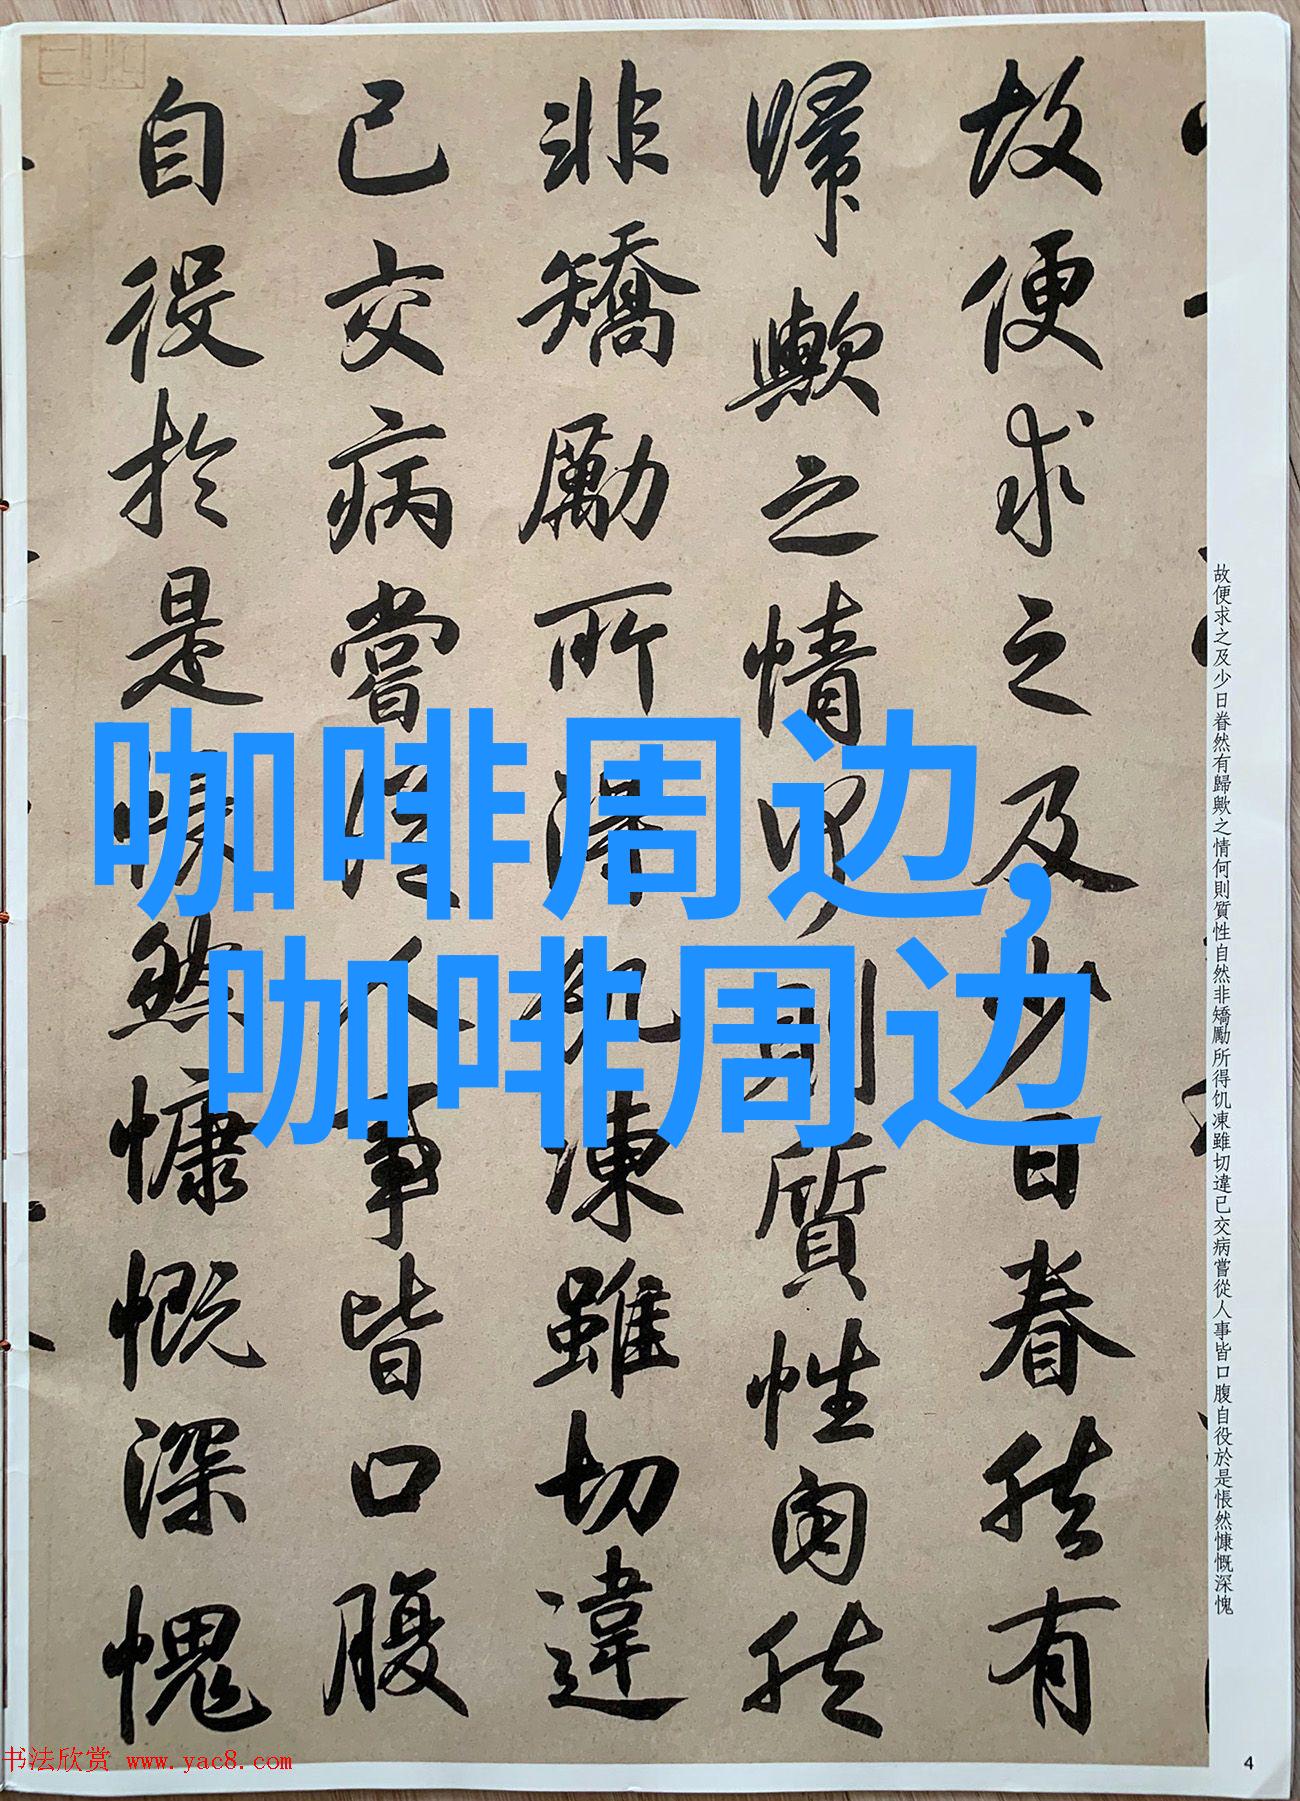 咖啡周边，
咖啡周边
故便求之及少日眷然有
歸歟之情何則質性自然
非矯勵所得飢凍雖切違
己交病嘗從人事皆口腹
自役於是悵然慷慨深愧
故便求之及少日眷然有歸歟之情何則質性自然非矯勵所得饥凍雖切違已交病嘗從人事皆口腹自役於是悵然慷慨深愧
书法欣赏 www.yac8.com
4